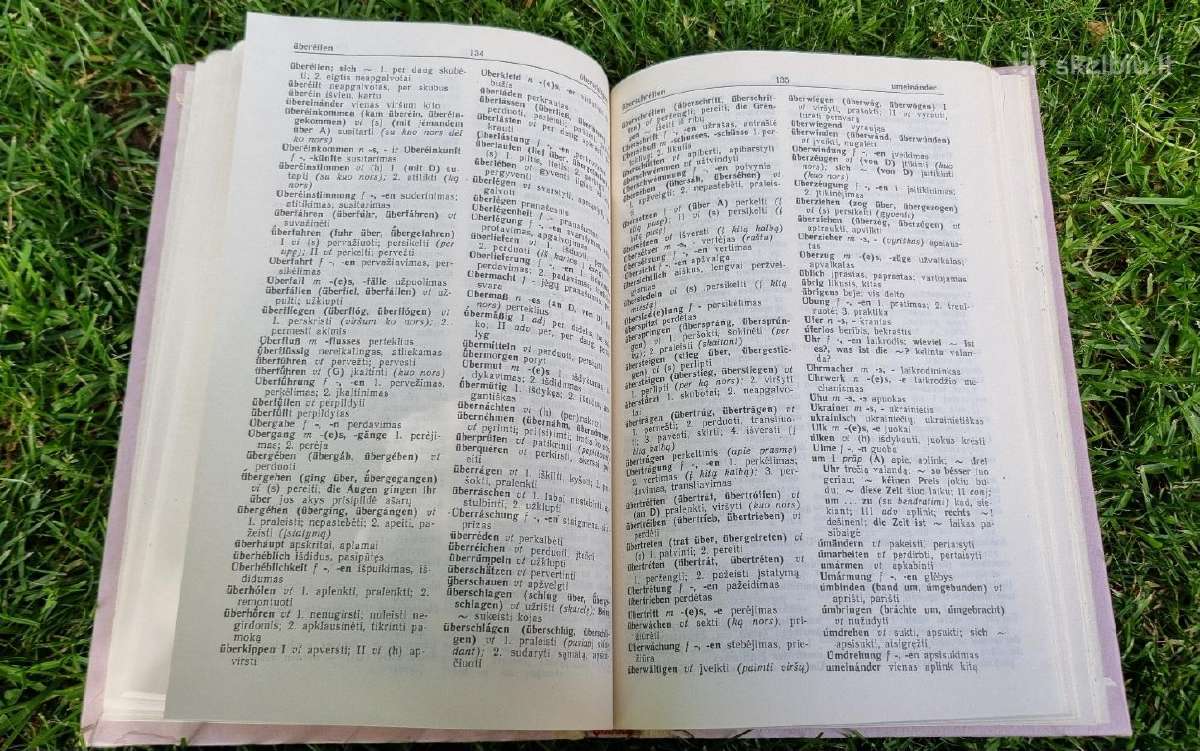 überéilen
134
überéilen; sich ~ 1. per daug skubė-
ti; 2. elgtis neapgalvotai
überéilt neapgalvotas, per skubus
überéin išvien, kartu
übereinánder vienas viršum kito
überéinkommen (kam überéin, überéin-
gekommen) vi (s) (mit jemandem
über A) susitarti (su kuo nors dėl
ko nors)
Überéinkommen n -s, - ir Überéinkunft
f -, -künfte susitarimas
überéinstimmen vi (h) 1. (mit D) su-
tapti (su kuo nors); 2. atitikti (ką
nors)
Überéinstimmung f -, -en suderinimas;
atitikimas; susitarimas
überfáhren (überfúhr, überfáhren) vt
suvažinėti
überfahren (fuhr über, übergefahren)
I vi (s) pervažiuoti; persikelti (per
upę); II vt perkelti; pervežti
Überfahrt f -, -en pervažiavimas, per-
sikėlimas
Überfall m -(e)s, -fälle užpuolimas
überfállen (überfíel, überfállen) vt už-
pulti; užklupti
überflíegen (überflóg, überflógen) vt
1. perskristi (viršum ko nors); 2.
permesti akimis
Überfluß m -flusses perteklius
überflüssig nereikalingas, atliekamas
überführen vt pervežti; pervesti
überführen vt (G) įkaltinti (kuo nors)
Überführung f -, -en 1. pervežimas,
perkėlimas; 2. įkaltinimas
überfüllen vt perpildyti
überfüllt perpildytas
Übergabe f -, -n perdavimas
Übergang m -(e)s, -gänge 1. perėji-
mas; 2. perėja
übergében (übergáb, übergében) vt
perduoti
übergehen (ging über, übergegangen)
vi (s) pereiti, die Augen gingen ihr
über jos akys prisipildė ašarų
übergéhen (übergíng, übergángen) vt
1. praleisti; nepastebėti; 2. apeiti, pa-
žeisti (įstatymą)
überháupt apskritai, aplamai
überhéblich išdidus, pasipūtęs
Überhéblichkeit f -, -en išpuikimas, iš-
didumas
überhólen vt 1. aplenkti, pralenkti; 2.
remontuoti
überhören vt 1. nenugirsti; nuleisti ne-
girdomis; 2. apklausinėti, tikrinti pa-
moką
überkippen I vt apversti; II vi (h) ap-
virsti
Überkleid n -(e)s, -er
bužis
überláden perkrautas
überlássen (überließ,
perduoti,
überlásten vt per daug
krauti
überlaufen (lief über,
pergyventi
überlében vt gyventi ilgiau
überlégen vt svarstyti,
galvoti
überlégen pranašesnis
Überlégenheit f -, pranašumas
Überlégung f -, -en
protavimas, apgalvojimas
überliefern vt 1. išduoti,
2. perduoti
Überlieferung f -, -en 1.
perdavimas; 2. padavimas,
Übermacht f - jėgų pranašumas,
svara
Übermaß n -es (an D,
nors) perteklius
übermäßig I adj per didelis,
ko; II adv per, per daug,
lyg
übermitteln vt perduoti,
übermorgen poryt
Übermut m -(e)s 1. išdykumas,
dykavimas; 2. išdidumas
übermütig 1. išdykęs; 2.
gantiškas
übernáchten vi (h) (per)nakvoti
übernéhmen (übernáhm, übernómmen)
vt perimti;
überprüfen vt patikrinti
überquéren vt perkirsti, skersai per-
eiti
überrágen vt 1. iškilti, kyšoti; 2.
šokti, pralenkti
überráschen vt 1. labai nustebinti,
stulbinti; 2. užklupti
Überráschung f -, -en staigmena,
prizas
überréden vt perkalbėti
überréichen vt perduoti, įteikti
überrúmpeln vt užklupti
überschätzen vt pervertinti
überscháuen vt apžvelgti
überschlagen (schlug über, überge-
schlagen) vt užrišti (skarelę);
~ sukeisti kojas
überschlágen (überschlúg, überschlá-
gen) vt 1. praleisti
2. sudaryti sąmatą, apskai-
čiuoti
135
umeinánder
überschréiten
überschréiten (überschrítt, überschrít-
ten) vt peržengti; pereiti;
išeiti iš ribų
Überschrift f -, -en užrašas, antraštė
Überschuß m -schusses, -schüsse 1. per-
teklius; 2. likutis
überschütten vt apiberti, apibarstyti
überschwémmen vt užtvindyti
Überschwémmung f -, -en potvynis
überséhen (übersáh, überséhen) vt
1. apžvelgti; 2. nepastebėti, praleis-
ti
übersetzen I vt (über A) perkelti (į
kitą pusę); II vi (s) persikelti (į
kitą pusę)
übersétzen vt išversti (į kitą kalbą)
Übersétzer m -s, - vertėjas (raštu)
Übersétzung f -, -en vertimas
Übersicht f -, -en apžvalga
übersichtlich aiškus, lengvai peržvel-
giamas
übersiedeln vi (s) persikelti (į kitą
miestą)
Übersied(e)lung f - persikėlimas
überspítzt perdėtas
überspríngen (übersprang, übersprún-
gen) vt 1. peršokti, sokinėti (per
ką); 2. praleisti (skaitant)
übersteigen (stieg über, übergestie-
gen) vi (s) perlipti
überstéigen (überstíeg, überstíegen) vt
1. perlipti (per ką nors); 2. viršyti
überstürzt 1. skubotai; 2. neapgalvo-
tai
übertrágen (übertrúg, übertrágen) vt
1. pernešti; 2. perduoti, transliuo-
ti; 3. pavesti, skirti; 4. išversti (į
kitą kalbą)
übertrágen perkeltinis (apie prasmę)
Übertrágung f -, -en 1. perkėlimas;
2. vertimas (į kitą kalbą); 3. per-
davimas, transliavimas
übertréffen (übertráf, übertróffen) vt
(an D) pralenkti, viršyti (kuo nors)
übertréiben (übertríeb, übertríeben) vt
perdėti
übertreten (trat über, übergetreten) vi
(s) 1. patvinti; 2. pereiti
übertréten (übertrát, übertréten) vt
1. peržengti; 2. pažeisti įstatymą
Übertrétung f -, -en pažeidimas
übertríeben perdėtas
Übertritt m -(e)s, -e perėjimas
überwáchen vt sekti (ką nors), pri-
žiūrėti
Überwáchung f -, -en stebėjimas, prie-
žiūra
überwältigen vt įveikti (paimti viršų)
überwíegen (überwóg, überwógen) I
vt viršyti, prašokti; II vi vyrauti,
turėti persvarą
überwíegend vyrauja
überwínden (überwánd, überwúnden)
vt įveikti, nugalėti
Überwíndung f -, -en įveikimas
überzéugen vt (von D) įtikinti (kuo
nors); sich ~ (von D) įsitikinti
(kuo nors)
Überzéugung f -, -en 1. įsitikinimas;
2. įtikinėjimas
überziehen (zog über, übergezogen)
vi (s) persikelti (gyventi)
überzíehen (überzóg, überzógen) vt
aptraukti, apvilkti
Überzieher m -s, - (vyriškas) apsiaus-
tas
Überzug m -(e)s, -züge užvalkalas;
apvalkalas
üblich įprastas, paprastas; vartojamas
übrig likusis, kitas
übrigens beje; vis dėlto
Übung f -, -en 1. pratimas; 2. treni-
ruotė; 3. praktika
Ufer n -s, - krantas
uferlos beribis, bekraštis
Uhr f -, -en laikrodis; wieviel ~ ist
es?, was ist die ~? kelinta valan-
da?
Uhrmacher m -s, - laikrodininkas
Uhrwerk n -(e)s, -e laikrodžio me-
chanizmas
Uhu m -s, -s apuokas
Ukrainer m -s, - ukrainietis
ukrainisch ukrainiečių, ukrainietiškas
Ulk m -(e)s, -e juokai
ulken vi (h) išdykauti, juokus krėsti
Ulme f -, -n guoba
um I präp (A) apie, aplink; ~ drei
Uhr trečią valandą; ~ so besser juo
geriau; ~ keinen Preis jokiu bū-
du; ~ diese Zeit šiuo laiku; II conj:
um ... zu (su bendratimi) kad, sie-
kiant; III adv aplink; rechts ~!
dešinėn!; die Zeit ist ~ laikas pa-
sibaigė
úmändern vt pakeisti, pertaisyti
úmarbeiten vt perdirbti, pertaisyti
umármen vt apkabinti
Umármung f -, -en glėbys
úmbinden (band um, úmgebunden) vt
aprišti, parišti
úmbringen (bráchte um, úmgebracht)
vt nužudyti
úmdrehen vt sukti, apsukti; sich ~
apsisukti, atsigręžti
Umdrehung f -, -en apsisukimas
umeinánder vienas aplink kitą
skelbiu.lt